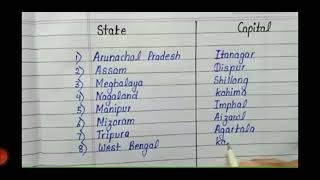 State Capital
1) Arunachal Pradesh Itanagar
2) Assam Dispur
3) Meghalaya Shillong
4) Nagaland Kohima
5) Manipur Imphal
6) Mizoram Aizawl
7) Tripura Agartala
8) West Bengal Ko